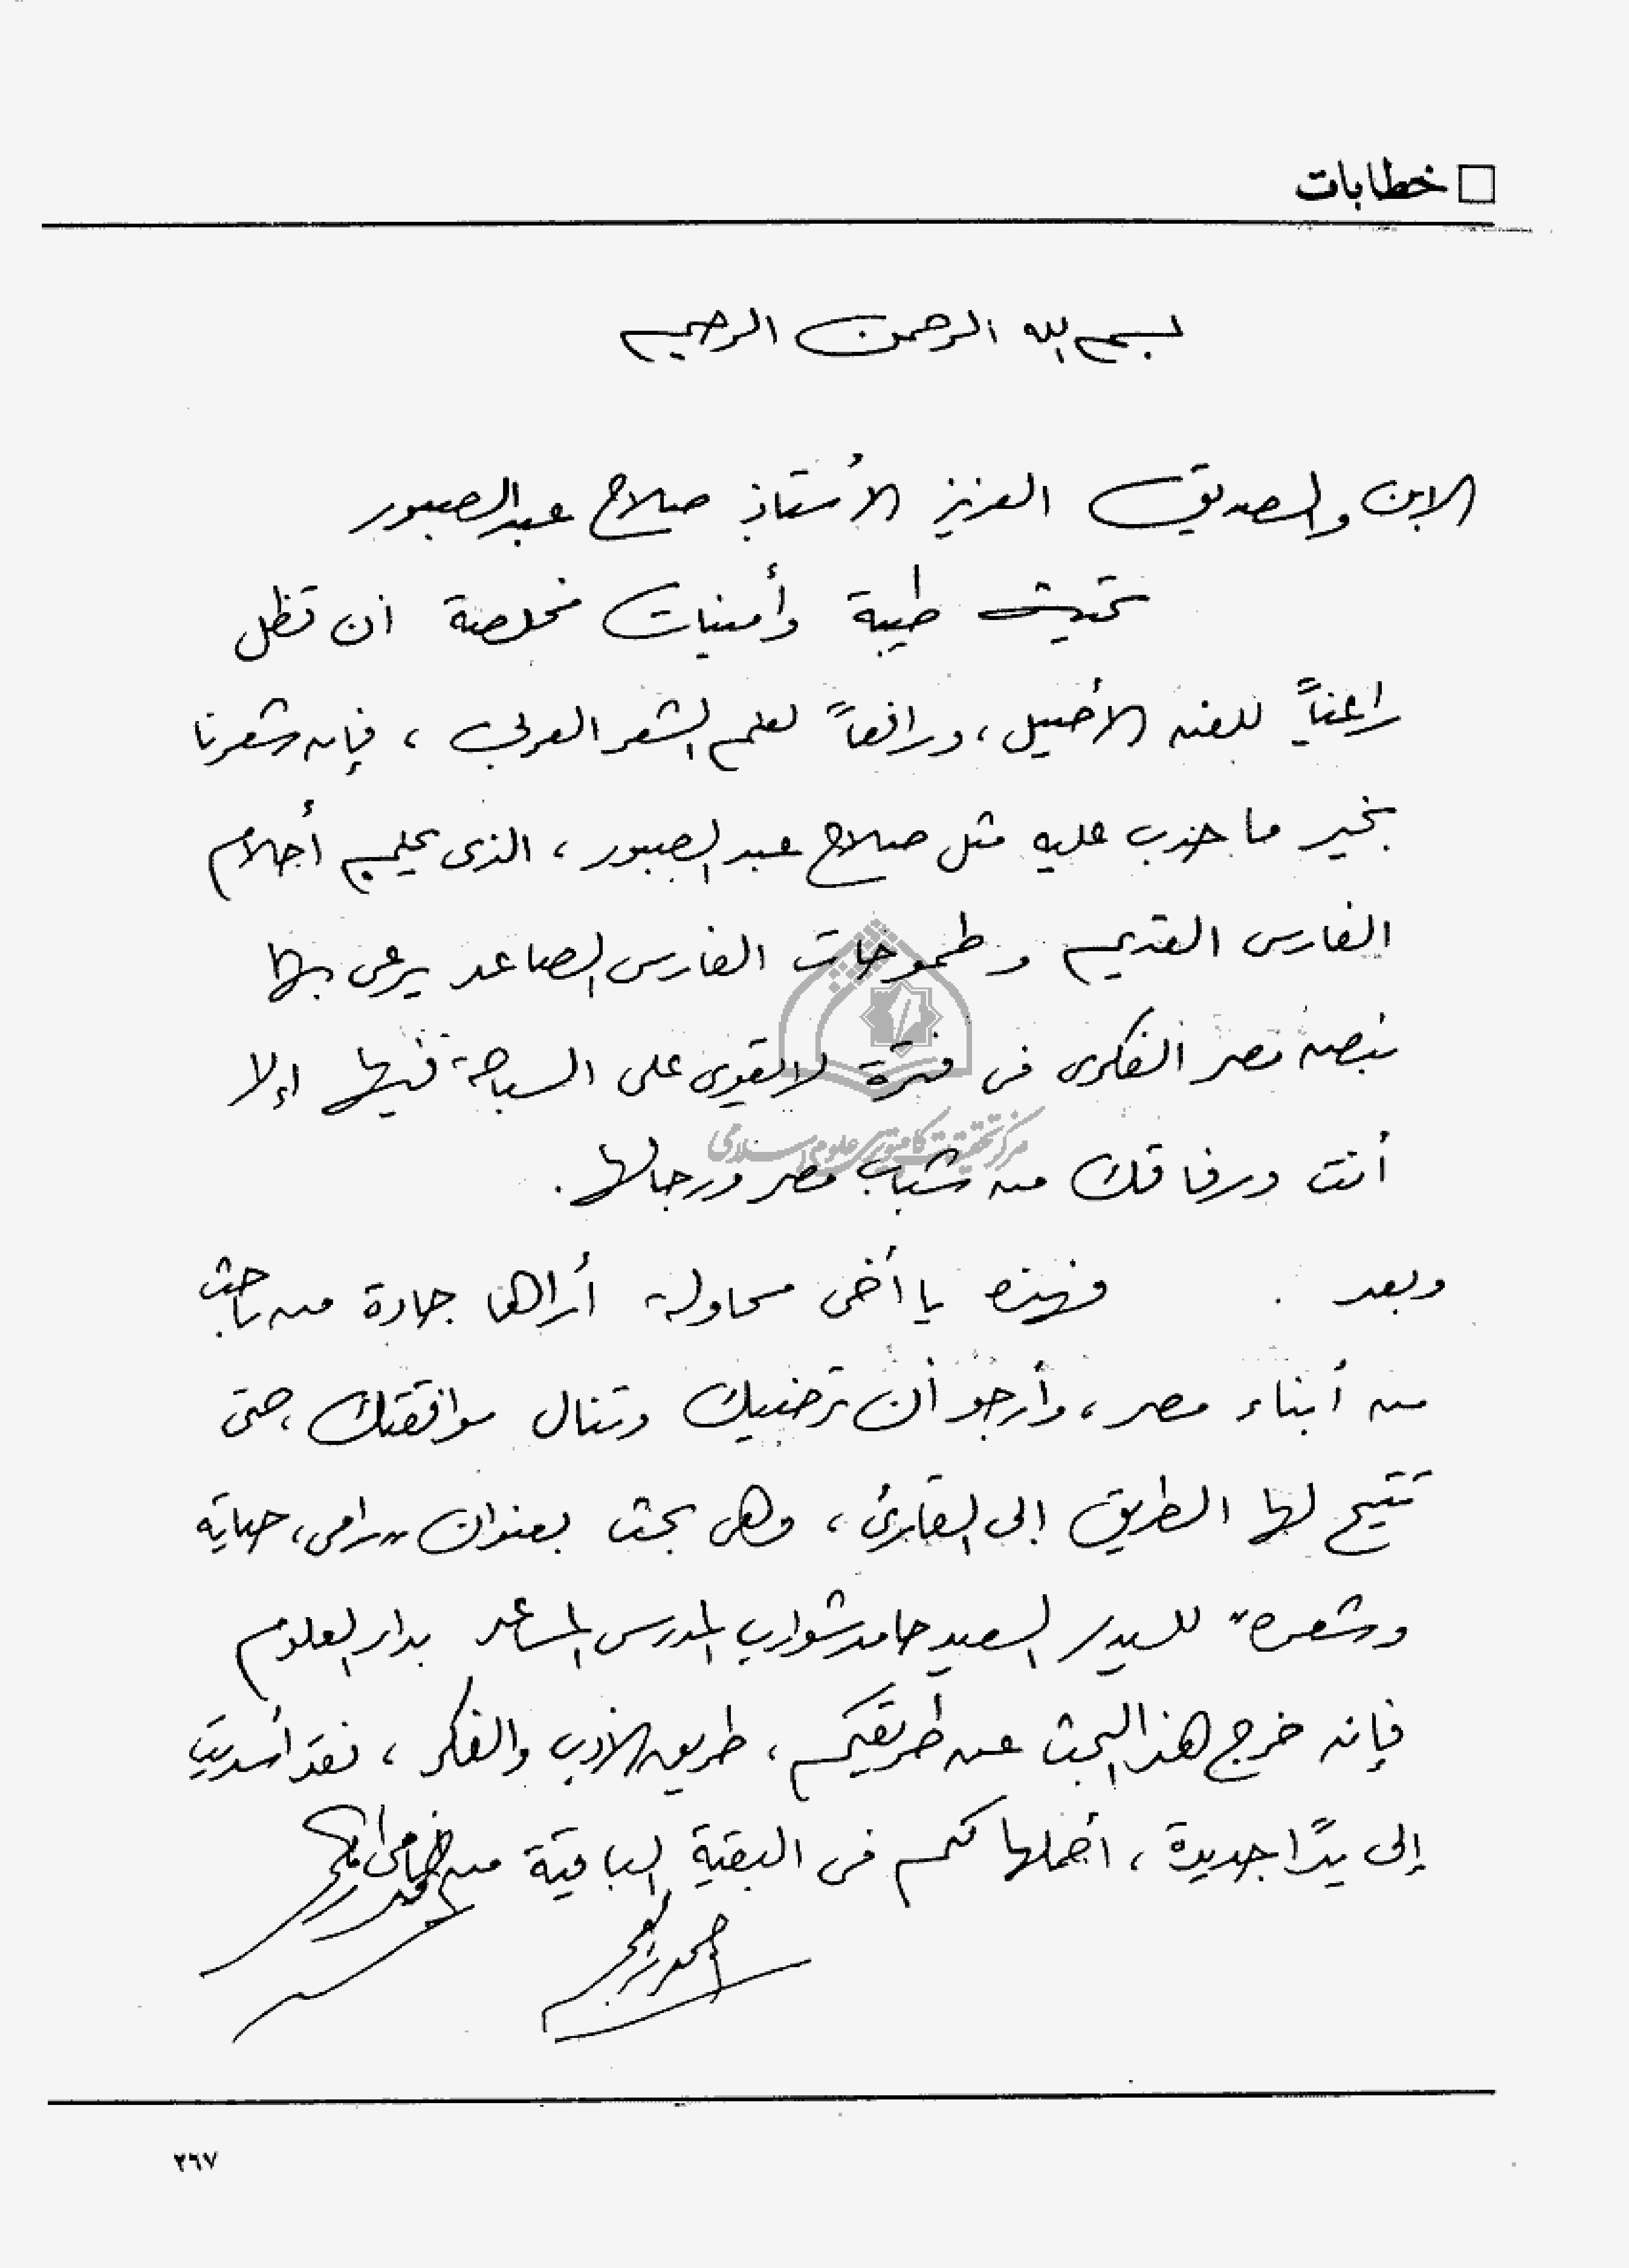 خطابات
بسم الله الرحمن الرحيم
الابن والصديق العزيز الأستاذ صلاح عبد الصبور
تحية طيبة وأمنيات مخلصة ان تظل
راعياً للفن الأصيل، ورافعاً لعلم الشعر العربي، فإن شعرنا
بخير ما حدب عليه مثل صلاح عبد الصبور، الذى يحلم أحلام
الفارس القديم وطموحات الفارس الصاعد يرعى بها
نبض مصر الفكرى فى فترة لا يقوى على السباحة فيها إلا
أنت ورفاقك من شباب مصر ورجالها.
وبعد . فهذه يا أخى محاولة أراها جادة من باحث
من أبناء مصر، وأرجو أن ترضيك وتنال موافقتك، حتى
تتيح لها الطريق إلى القارئ، وهى بحث بعنوان "رامى، حياته
وشعره" للسيد / السعيد حامد شوارب المدرس المساعد بدار العلوم
فإن خرج هذا البحث عن طريقكم، طريق الأدب والفكر، فقد أسديت
إلى يدًا جديدة، أحملها لكم فى البقية الباقية من
مركز تحقيقات كامپيوترى علوم اسلامى
٢٦٧